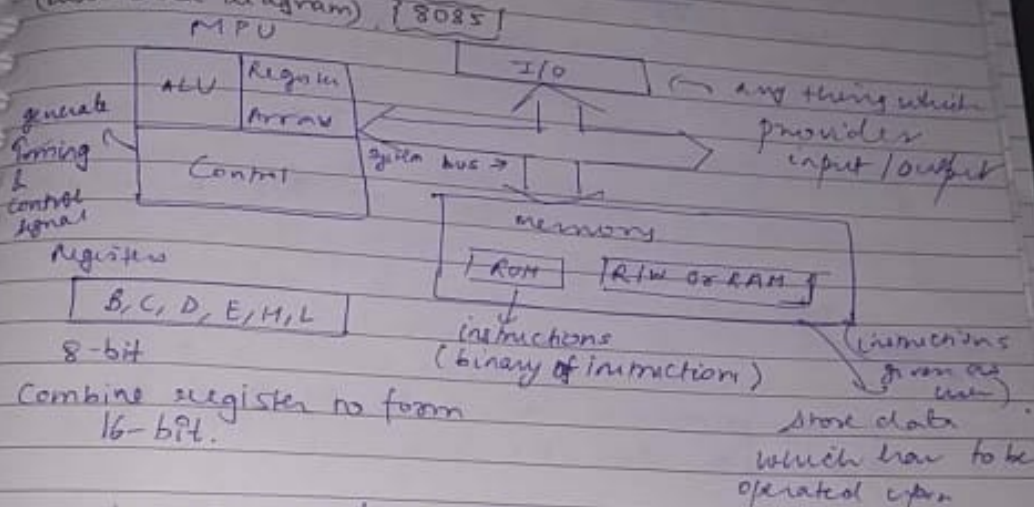 diagram) 8085
MPU
ALU
Register
Array
Control
generate
timing
&
control
signal
I/O
any thing which
provides
input / output
system bus →
memory
ROM
R/W or RAM
Registers
B, C, D, E, H, L
8-bit
Combine register to form
16-bit.
instructions
(binary of instruction)
(instructions
given as
user)
store data
which has to be
operated upon